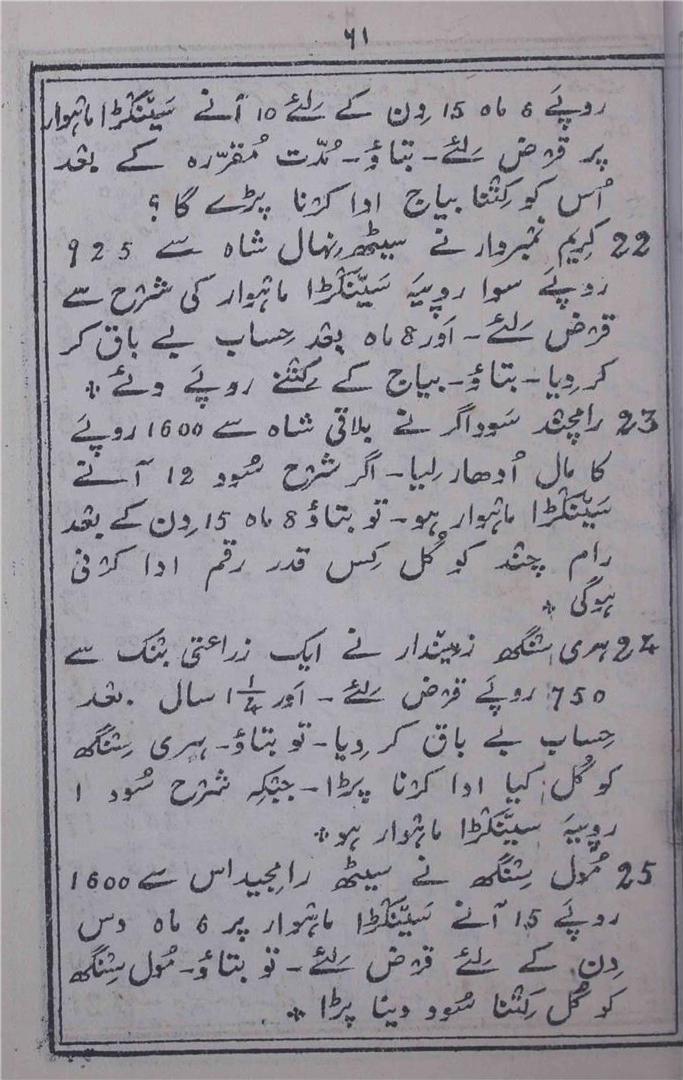 ۶۱
روپَے 6 ماہ 15 دِن کے لئے 10 آنے سَینّکڑا ماہوار
پر قرض لئے۔ بتاؤ۔ مُدّت مُقرّرہ کے بعد
اُس کو کِتنا بیاج ادا کرنا پڑے گا؟
22 کریم نمبردار نے سیٹھ نِہال شاہ سے 925
روپَے سوا روپیہ سَینّکڑا ماہوار کی شرح سے
قرض لئے۔ اَور 8 ماہ بعد حِساب بے باق کر
کر دِیا۔ بتاؤ۔ بیاج کے کِتنے روپَے دئے *
23 رامچند سَوداگر نے بلاقی شاہ سے 1600 روپَے
کا مال اُدھار لیا۔ اگر شرح سُود 12 آنے
سَینّکڑا ماہوار ہو۔ تو بتاؤ 8 ماہ 15 دِن کے بعد
رام چند کو کُل کِس قدر رقم ادا کرنی
ہوگی *
24 ہری سِنگھ زمیندار نے ایک زراعتی بنک سے
750 روپَے قرض لئے۔ اَور 1 1/4 سال بعد
حِساب بے باق کر دِیا۔ تو بتاؤ۔ ہری سِنگھ
کو کُل کیا ادا کرنا پڑا۔ جبکہ شرح سُود 1
روپیہَ سینّکڑا ماہوار ہو *
25 مُول سِنگھ نے سیٹھ رامجیداس سے 1600
روپَے 15 آنے سَینّکڑا ماہوار پر 6 ماہ دس
دِن کے لئے قرض لئے۔ تو بتاؤ۔ مُول سِنگھ
کو کُل کِتنا سُود دینا پڑا *